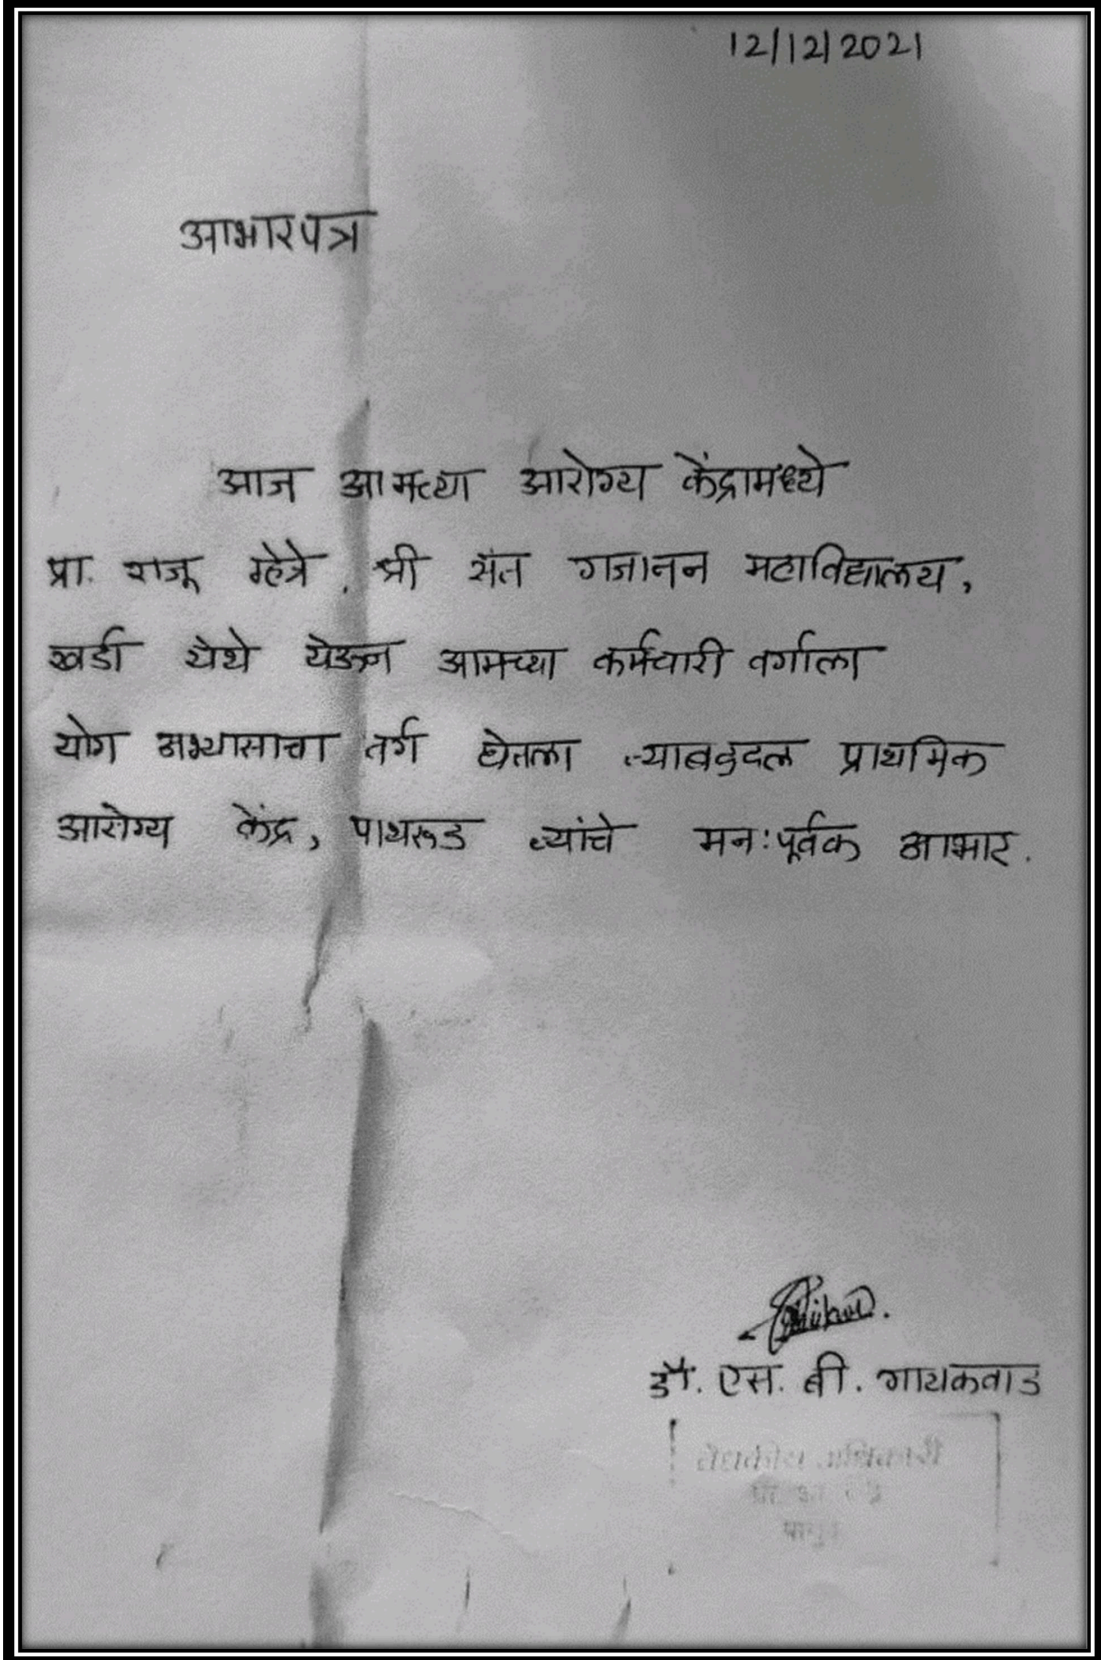 12/12/2021
आभारपत्र
आज आमच्या आरोग्य केंद्रामध्ये
प्रा. राजू म्हेत्रे, श्री संत गजानन महाविद्यालय,
खर्डा येथे येऊन आमच्या कर्मचारी वर्गाला
योग अभ्यासाचा वर्ग घेतला त्याबद्दल प्राथमिक
आरोग्य केंद्र, पाथरूड यांचे मन:पूर्वक आभार.
डॉ. एस. बी. गायकवाड